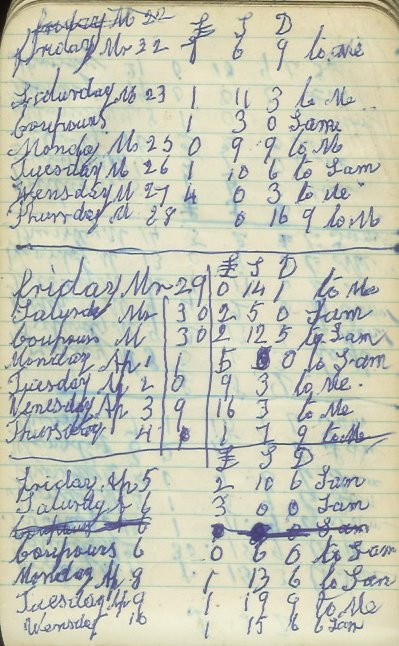 £ S D
Friday Mr 22 1 6 9 to Me
Saturday M 23 1 11 3 to Me
Coupours 1 3 0 Sam
Monday M 25 0 9 9 to M
Tuesday M 26 1 10 6 to Sam
Wensday M 27 4 0 3 to Me
Thursday M 28 0 16 9 to M
£ S D
Friday Mr 29 0 14 1 to Me
Saturday Mr 30 2 5 0 Sam
Coupours M 30 2 12 5 to Sam
Monday Ap 1 5 0 to Sam
Tuesday Ap 2 0 9 3 to Me.
Wenesday Ap 3 9 16 3 to Me
Thursday 4 1 7 9 to Me
£ S D
Friday Ap 5 2 10 6 Sam
Saturday 6 3 0 0 Sam
Coupours 6 0 6 0 to Sam
Monday Ap 8 1 13 6 to Sam
Tuesday Ap 9 1 19 9 to Me
Wensday 10 1 15 6 Sam